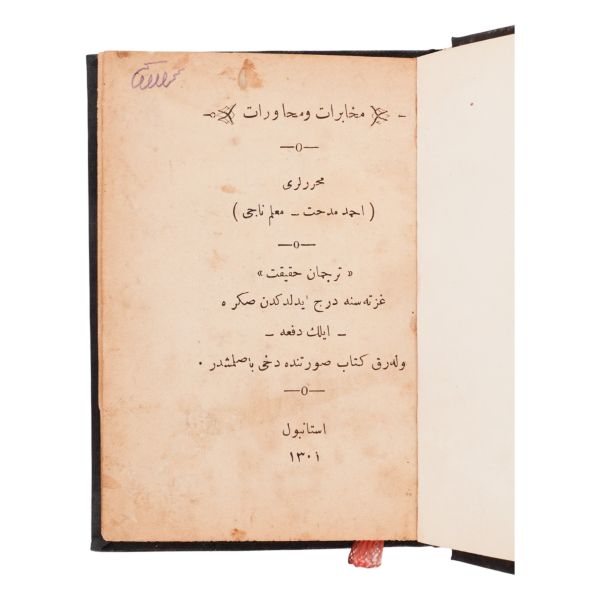 مخابرات ومحاورات
محررلری
( احمد مدحت – معلم ناجی )
« ترجمان حقیقت »
غزته سنه درج ایدلدكدن صكره
– ایلك دفعه –
ولەرق كتاب صورتنده دخی باصلمشدر ·
استانبول
١٣٠١